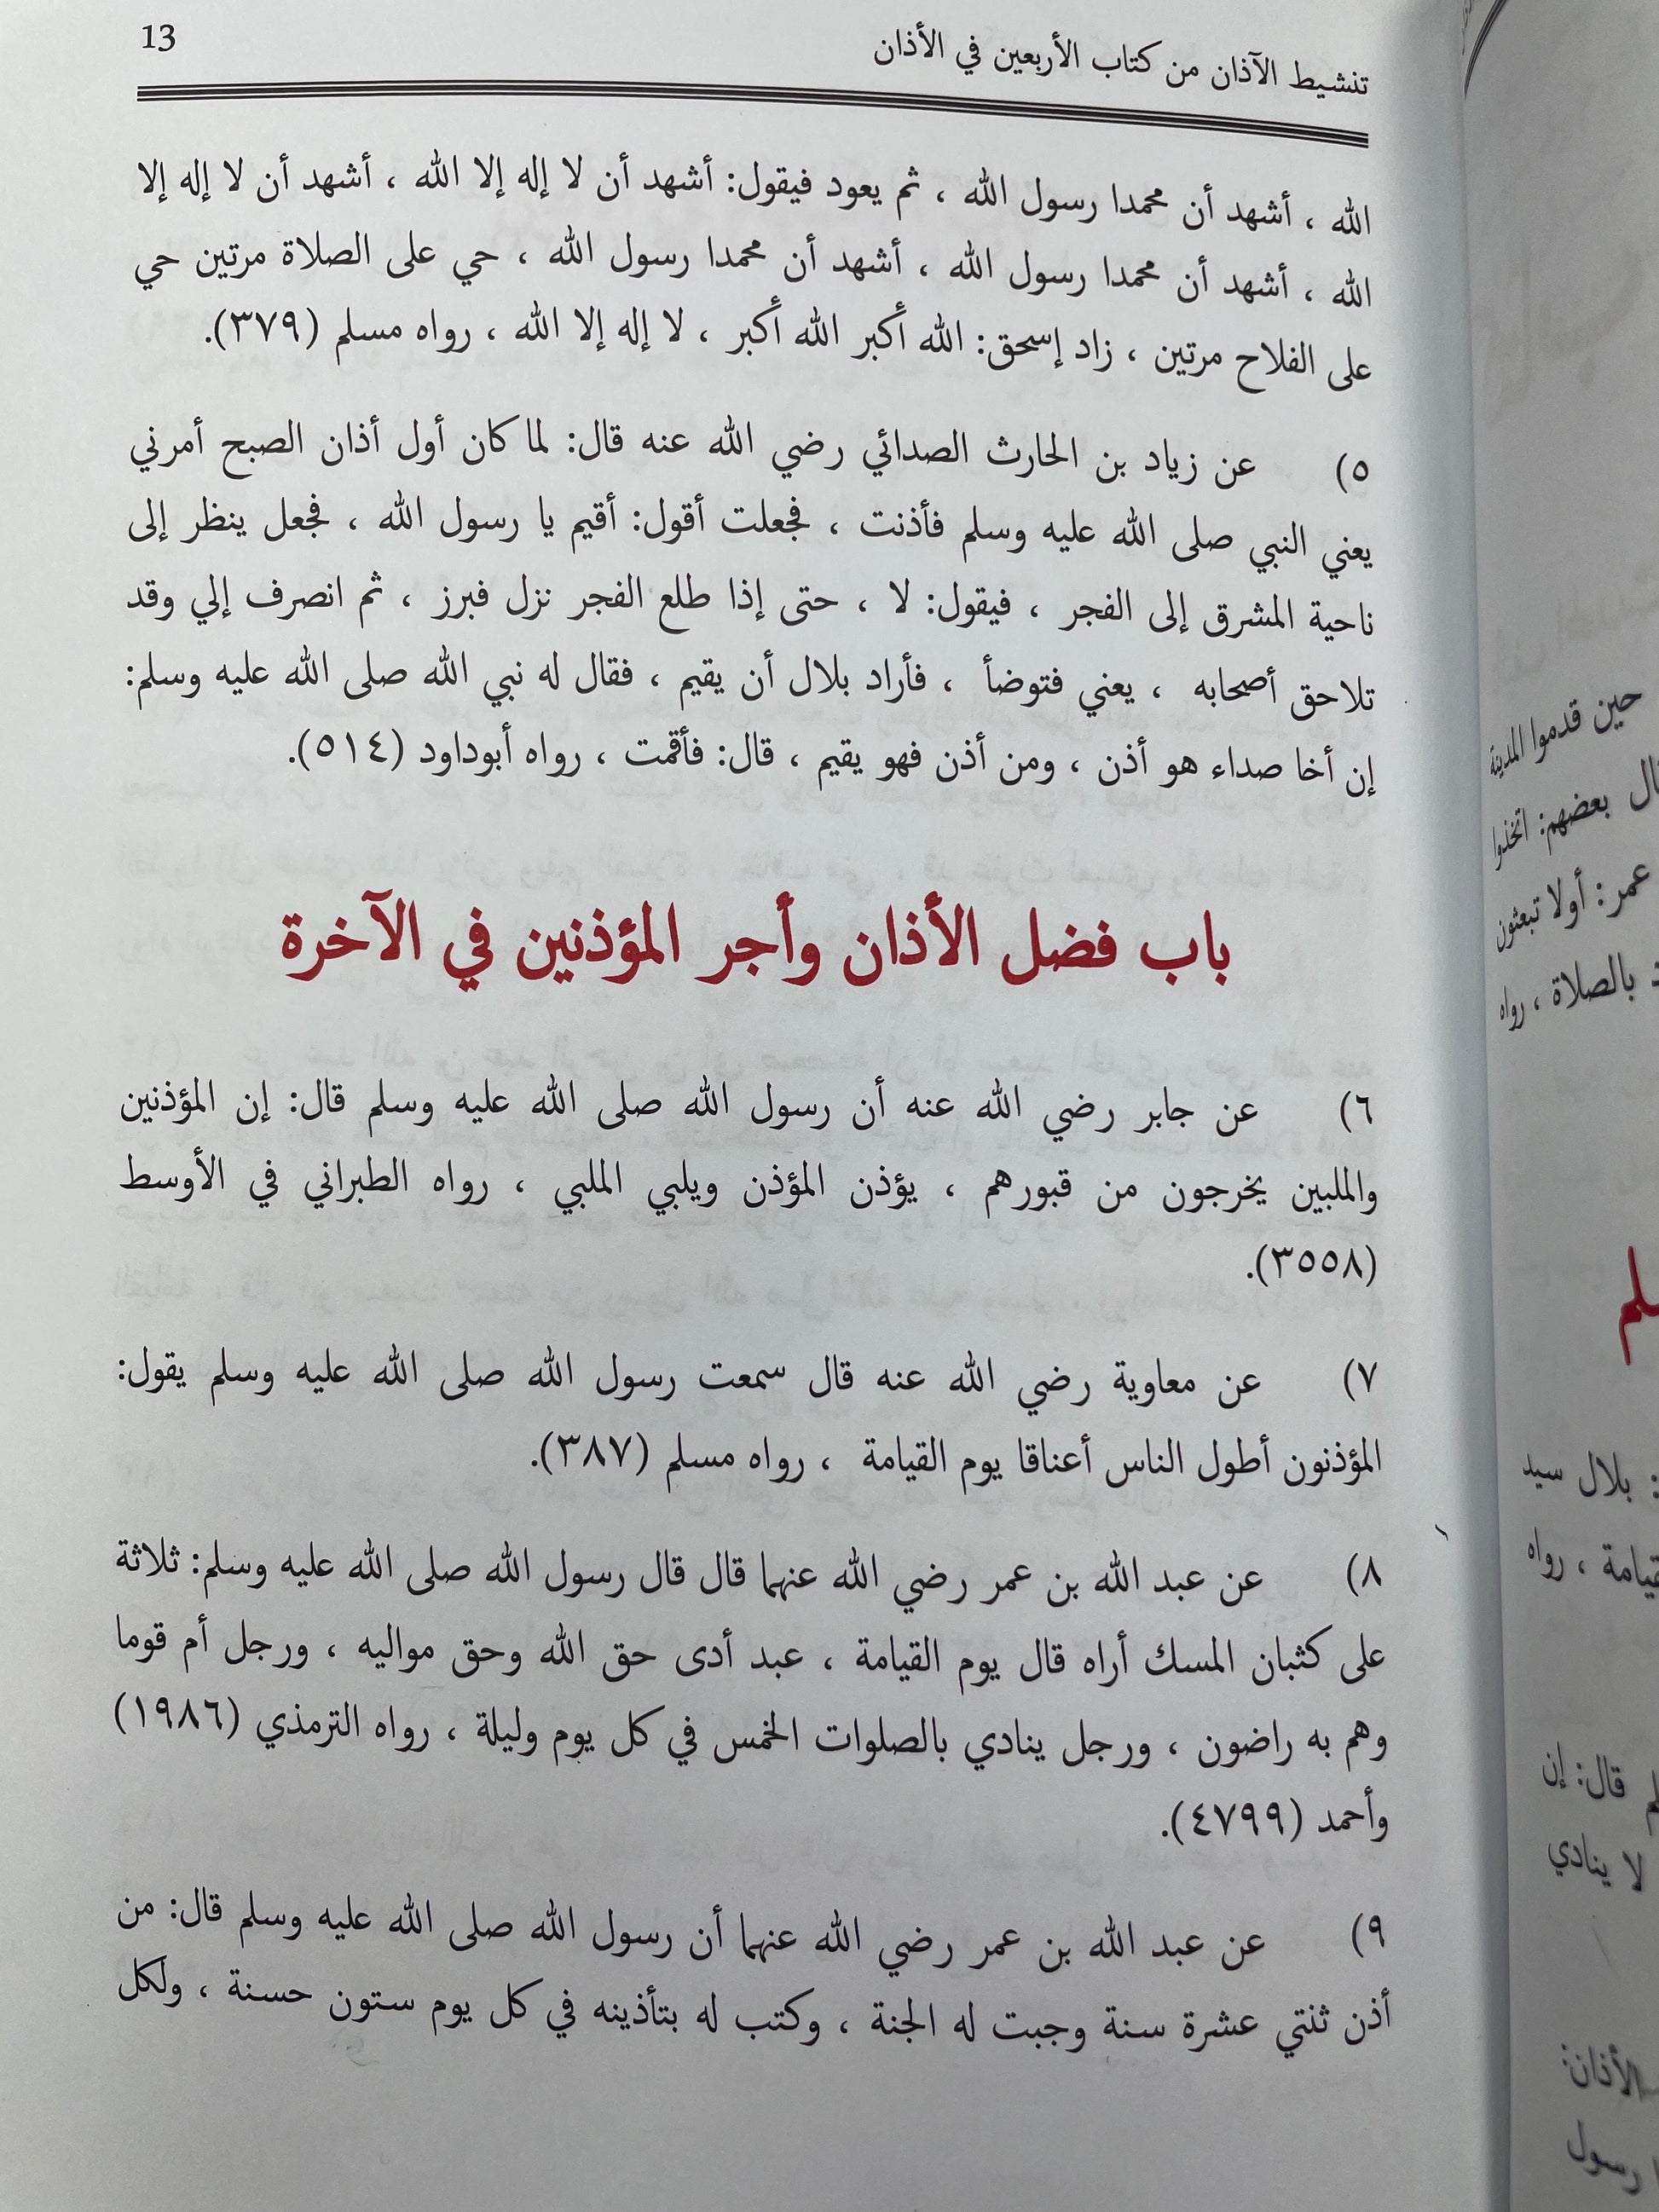 تنشيط الآذان من كتاب الأربعين في الأذان
13
الله ، أشهد أن محمدا رسول الله ، ثم يعود فيقول: أشهد أن لا إله إلا الله ، أشهد أن لا إله إلا
الله ، أشهد أن محمدا رسول الله ، أشهد أن محمدا رسول الله ، حي على الصلاة مرتين حي
على الفلاح مرتين ، زاد إسحق: الله أكبر الله أكبر ، لا إله إلا الله ، رواه مسلم (٣٧٩).
٥) عن زياد بن الحارث الصدائي رضي الله عنه قال: لما كان أول أذان الصبح أمرني
يعني النبي صلى الله عليه وسلم فأذنت ، فجعلت أقول: أقيم يا رسول الله ، فجعل ينظر إلى
ناحية المشرق إلى الفجر ، فيقول: لا ، حتى إذا طلع الفجر نزل فبرز ، ثم انصرف إلي وقد
تلاحق أصحابه ، يعني فتوضأ ، فأراد بلال أن يقيم ، فقال له نبي الله صلى الله عليه وسلم:
إن أخا صداء هو أذن ، ومن أذن فهو يقيم ، قال: فأقمت ، رواه أبوداود (٥١٤).
باب فضل الأذان وأجر المؤذنين في الآخرة
٦) عن جابر رضي الله عنه أن رسول الله صلى الله عليه وسلم قال: إن المؤذنين
والملبين يخرجون من قبورهم ، يؤذن المؤذن ويلبي الملبي ، رواه الطبراني في الأوسط
(٣٥٥٨).
٧) عن معاوية رضي الله عنه قال سمعت رسول الله صلى الله عليه وسلم يقول:
المؤذنون أطول الناس أعناقا يوم القيامة ، رواه مسلم (٣٨٧).
٨) عن عبد الله بن عمر رضي الله عنهما قال قال رسول الله صلى الله عليه وسلم: ثلاثة
على كثبان المسك أراه قال يوم القيامة ، عبد أدى حق الله وحق مواليه ، ورجل أم قوما
وهم به راضون ، ورجل ينادي بالصلوات الخمس في كل يوم وليلة ، رواه الترمذي (١٩٨٦)
وأحمد (٤٧٩٩).
٩) عن عبد الله بن عمر رضي الله عنهما أن رسول الله صلى الله عليه وسلم قال: من
أذن ثنتي عشرة سنة وجبت له الجنة ، وكتب له بتأذينه في كل يوم ستون حسنة ، ولكل
حين قدموا المدينة
بعضهم: اتخذوا
عمر: أولا تبعثون
بالصلاة ، رواه
بلال سيد
رواه
قال: إن
لا ينادي
الأذان:
رسول